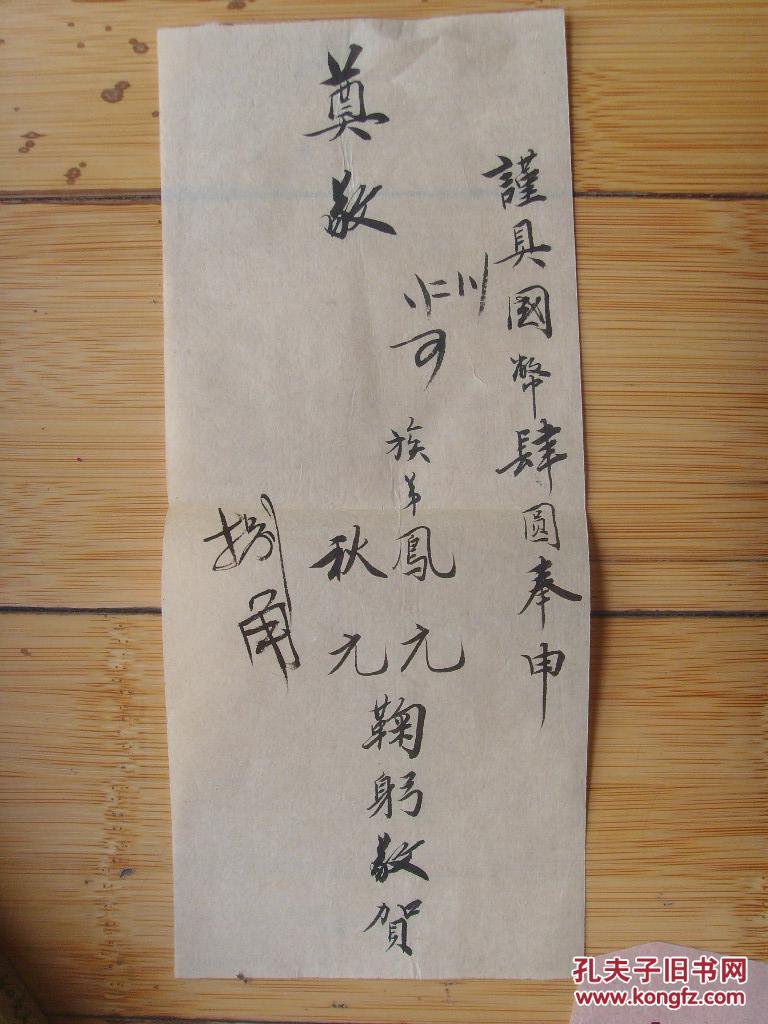 謹具國幣肆圓奉申
奠敬
族弟鳳元
秋元
鞠躬敬賀
捌角
孔夫子旧书网
www.kongfz.com